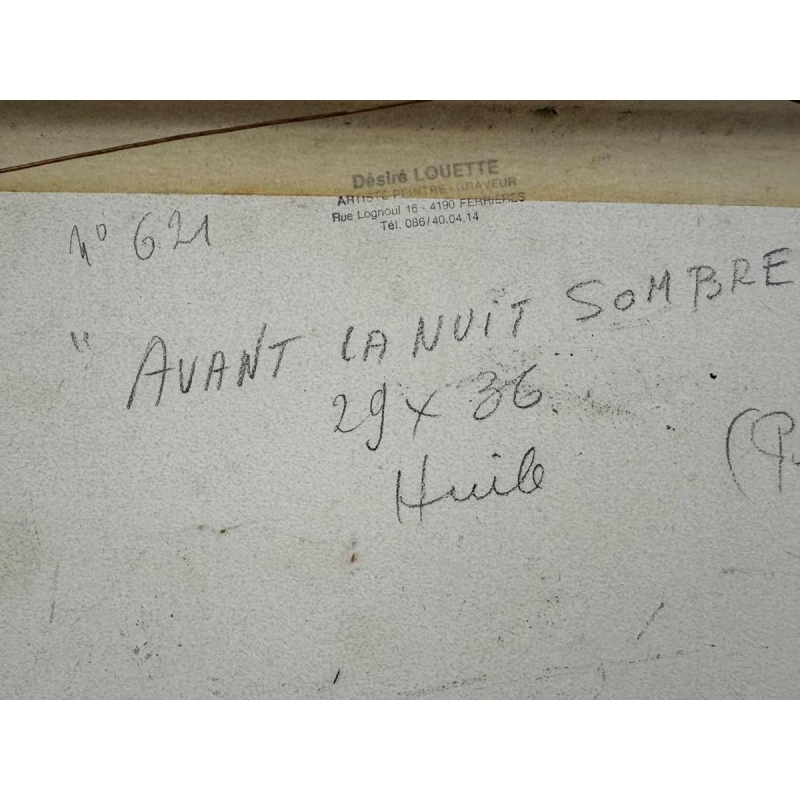 Désiré LOUETTE
ARTISTE PEINTRE - GRAVEUR
Rue Lognoul 16 - 4190 FERRIÈRES
Tél. 086/40.04.14
N° 621
" AVANT LA NUIT SOMBRE
29 x 36.
Huile